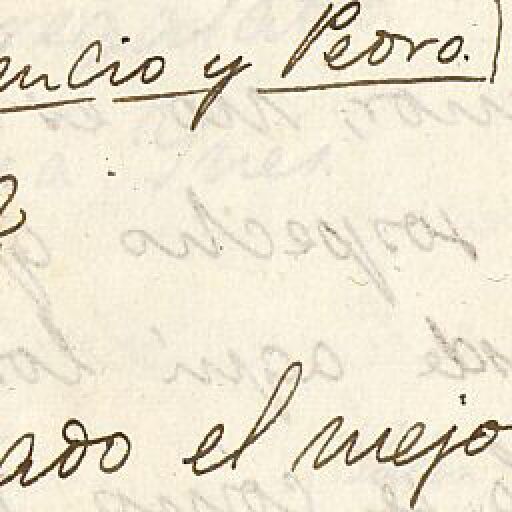 encio y Pedro.)
ado el mejo